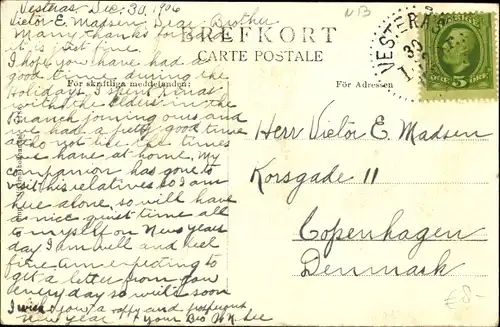 Vesteras, Dec. 30, 1906
Victor E. Madsen, Dear Brother
Many thanks for
it is just fine.
I hope you have had a
good time during the
Holidays. I spent
with the Elders in the
Branch joining us and
we had a good time
tho not like the times
we have at home. My
companion has gone to
visit his relatives so I am
here alone, so will have
a nice quiet time all
to myself on New years
day I am well and feel
fine am expecting to
get a letter from you
every day so write soon
I wish you a happy and prosperous
New year. your Bro
BREFKORT
CARTE POSTALE
För skriftliga meddelanden:
För Adressen
VESTERÅS
30
SVERIGE
ÖRE 5 ÖRE
Herr Victor E. Madsen
Korsgade 11
Copenhagen
Denmark
€8-